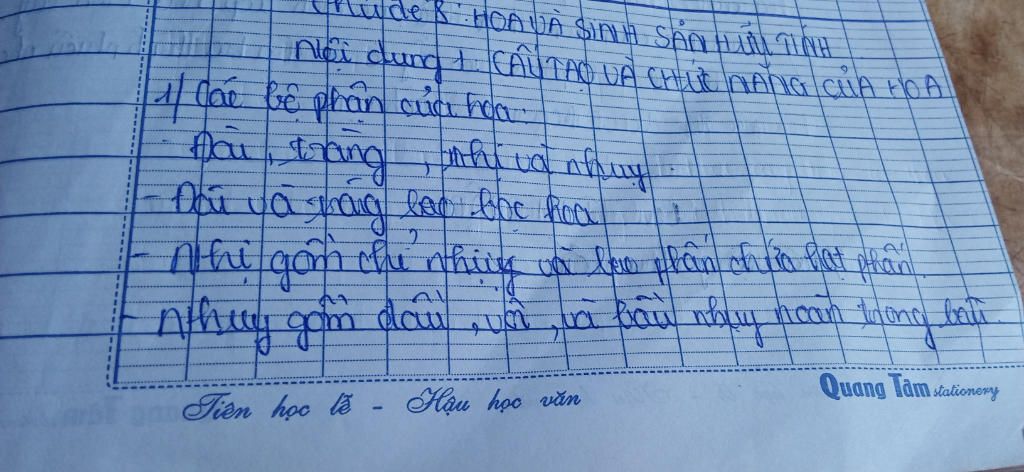 chủ đề 8: HOA VÀ SINH SẢN HỮU TÍNH
Nội dung 1. CẤU TẠO VÀ CHỨC NĂNG CỦA HOA
1) Các bộ phận của hoa.
- Đài, tràng, nhị và nhụy.
- Đài và tràng bao bọc hoa
- Nhị gồm chỉ nhụy và bao phấn chứa hạt phấn.
- Nhụy gồm đầu, vòi, và bầu nhụy noãn trong bầu.
Tiên học lễ - Hậu học văn
Quang Tâm stationery